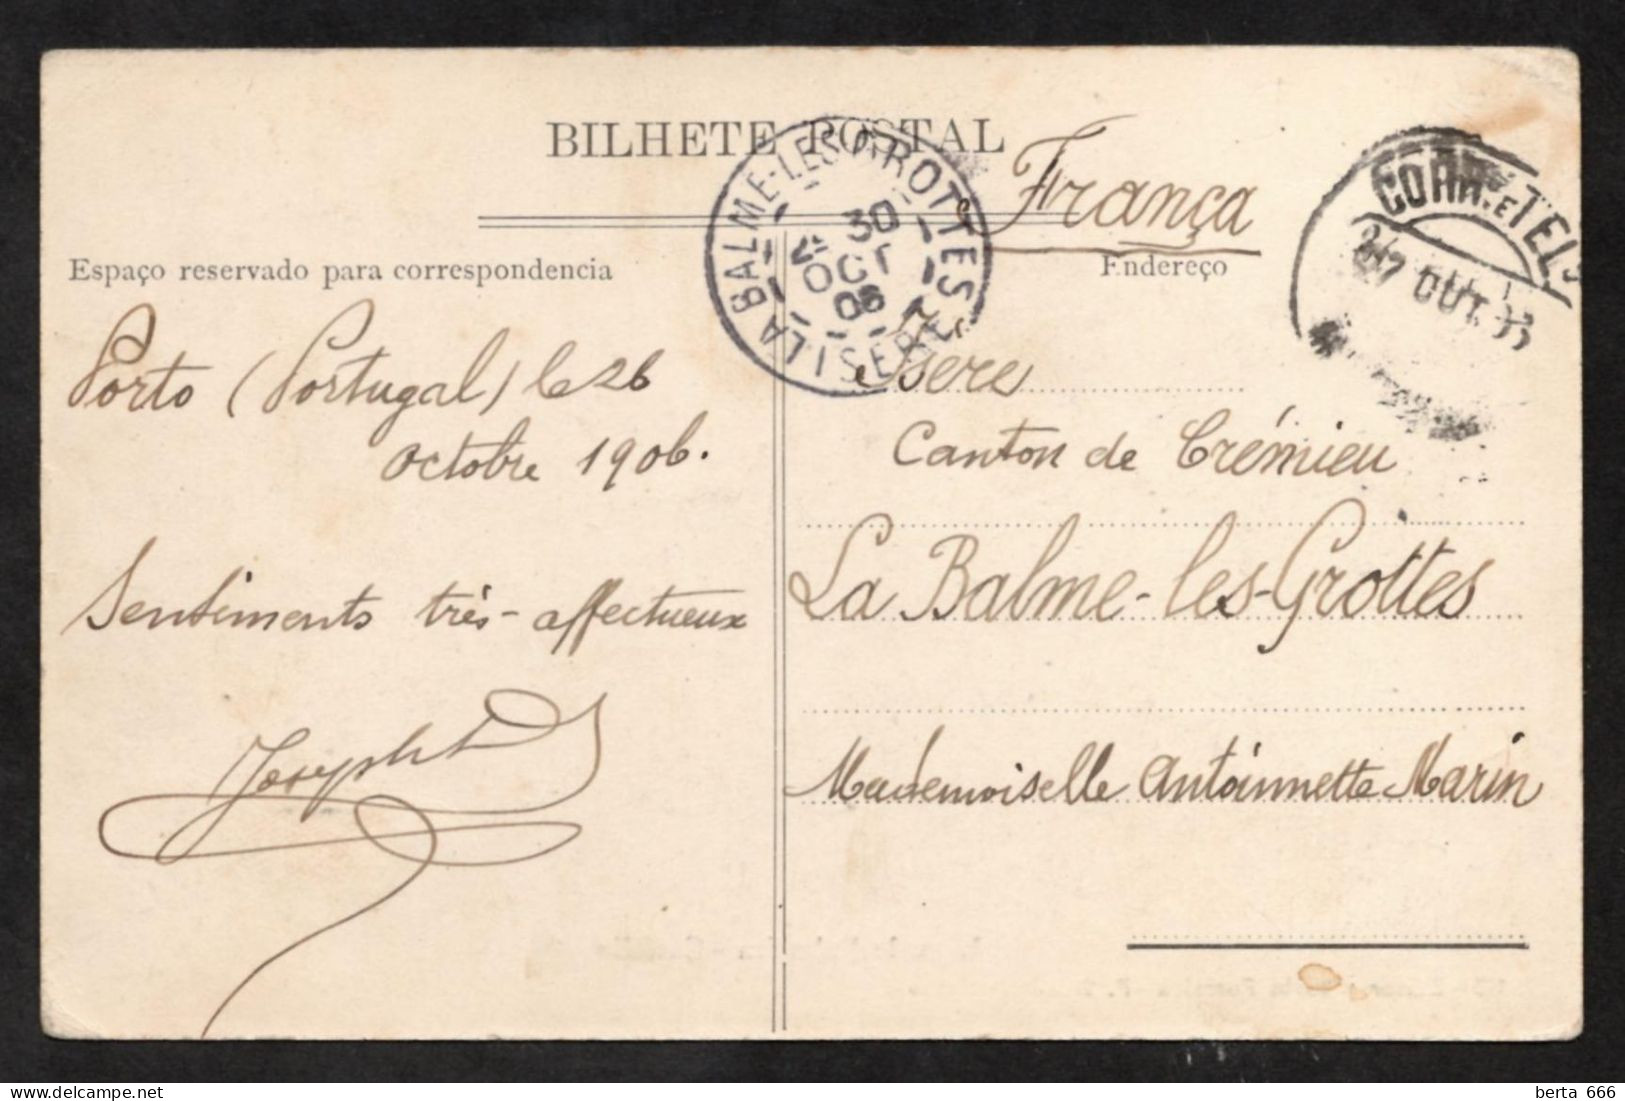 BILHETE POSTAL
França
Espaço reservado para correspondencia
Endereço
LA BALME-LES GROTTES
30
OCT
06
ISERE
CORR. E TEL
OUT.
Porto (Portugal) le 26
Octobre 1906.
Sentiments très-affectueux
Joseph
Isere
Canton de Crémieu
La Balme-les-Grottes
Mademoiselle Antoinnette Marin
berta 666